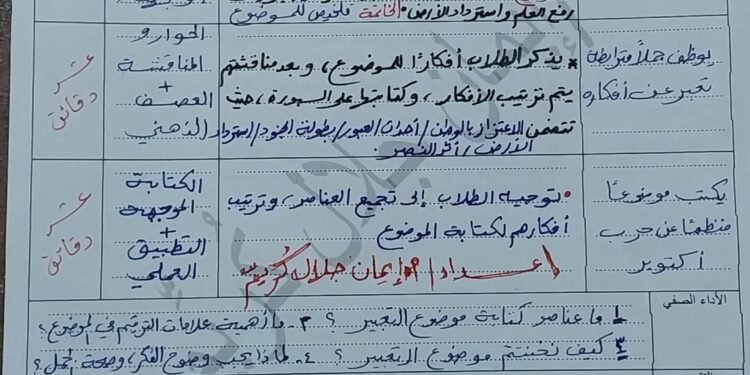 رفع العلم واسترداد الأرض • الخاتمة تلخيص للموضوع
يوظف جملًا مترابطة
تعبر عن أفكاره
* يذكر الطلاب أفكارًا للموضوع، وبعد مناقشتهم
يتم ترتيب الأفكار، وكتابتها على السبورة، حيث
تتضمن الاعتزاز بالوطن/أحداث العبور/بطولة الجنود/استرداد
الأرض/أثر النصر.
الحوار و
المناقشة
+
العصف
الذهني
عشر
دقائق
يكتب موضوعًا
منظمًا عن حرب
أكتوبر
• توجيه الطلاب إلى تجميع العناصر، وترتيب
أفكارهم لكتابة الموضوع
إعداد / إيمان جلال كُريّم
الكتابة
الموجهة
+
التطبيق
العملي
عشر
دقائق
الأداء الصفي
١- ما عناصر كتابة موضوع التعبير؟ ٢- ما أهمية علامات الترقيم في الموضوع؟
٣- كيف نختتم موضوع التعبير؟ ٤- لماذا يجب وضوح الفكر، وصحة الجمل؟